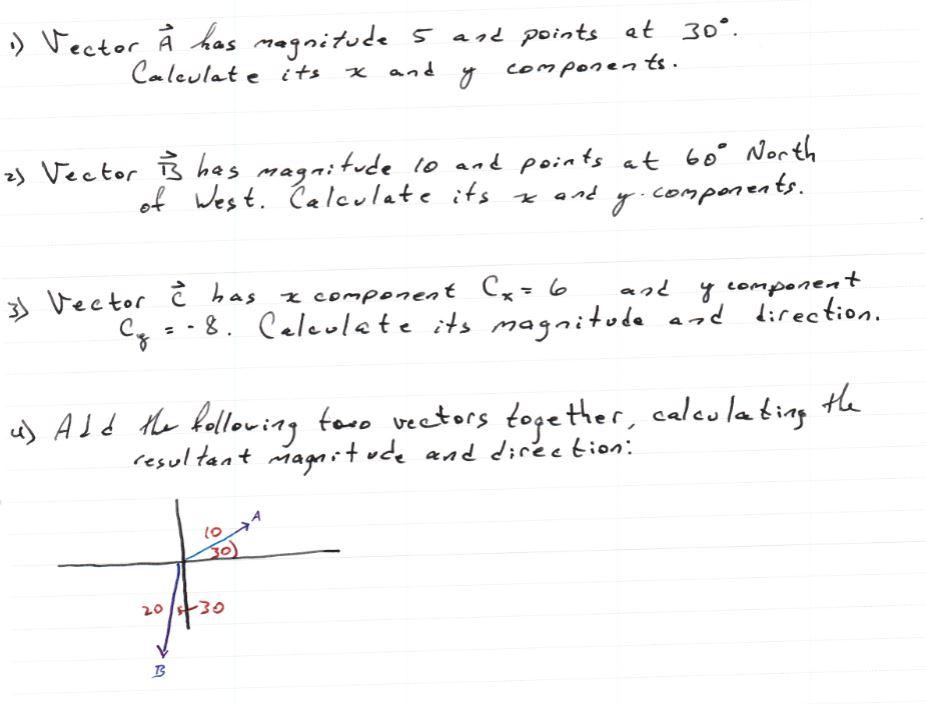 1) Vector A⃗ has magnitude 5 and points at 30°.
Calculate its x and y components.
2) Vector B⃗ has magnitude 10 and points at 60° North
of West. Calculate its x and y components.
3) Vector C⃗ has x component Cx = 6 and y component
Cy = -8. Calculate its magnitude and direction.
4) Add the following two vectors together, calculating the
resultant magnitude and direction:
A
10
30
20
30
B